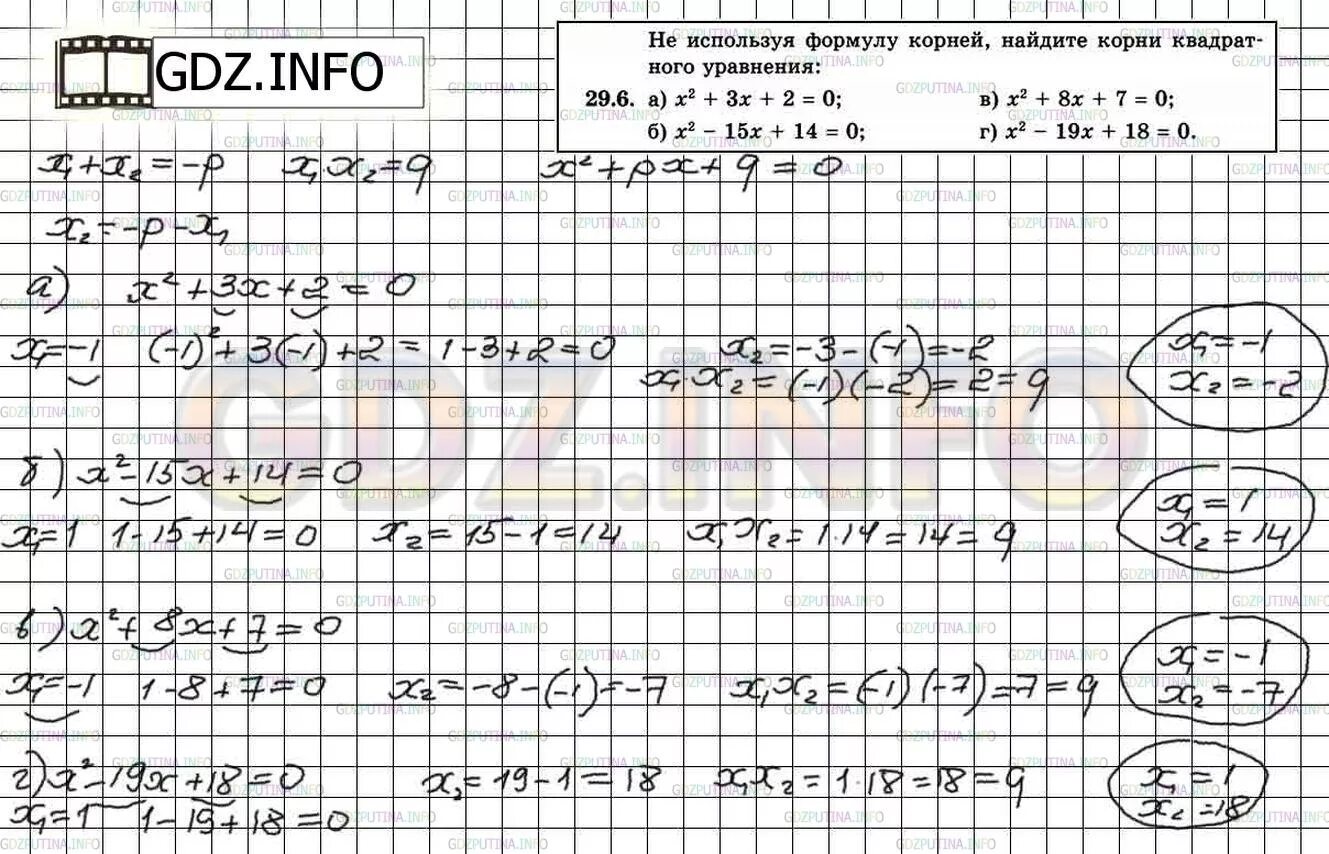 GDZ.INFO
Не используя формулу корней, найдите корни квадрат-
ного уравнения:
29.6. а) x² + 3x + 2 = 0; в) x² + 8x + 7 = 0;
б) x² − 15x + 14 = 0; г) x² − 19x + 18 = 0.
x₁+x₂=-p x₁·x₂=q x²+px+q=0
x₂=-p-x₁
а) x²+3x+2=0
x₁=-1 (-1)²+3(-1)+2=1-3+2=0 x₂=-3-(-1)=-2 x₁=-1
x₁·x₂=(-1)(-2)=2=q x₂=-2
GDZ.INFO
б) x²-15x+14=0
x₁=1 1-15+14=0 x₂=15-1=14 x₁x₂=1·14=14=q x₁=1
x₂=14
в) x²+8x+7=0
x₁=-1 1-8+7=0 x₂=-8-(-1)=-7 x₁x₂=(-1)(-7)=7=q x₁=-1
x₂=-7
г) x²-19x+18=0 x₂=19-1=18 x₁x₂=1·18=18=q x₁=1
x₁=1 1-19+18=0 x₂=18
GDZPUTINA.INFO